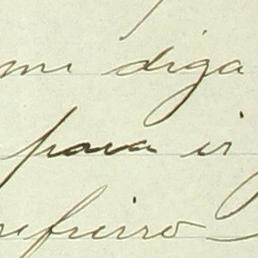 me diga
para ir
refierro